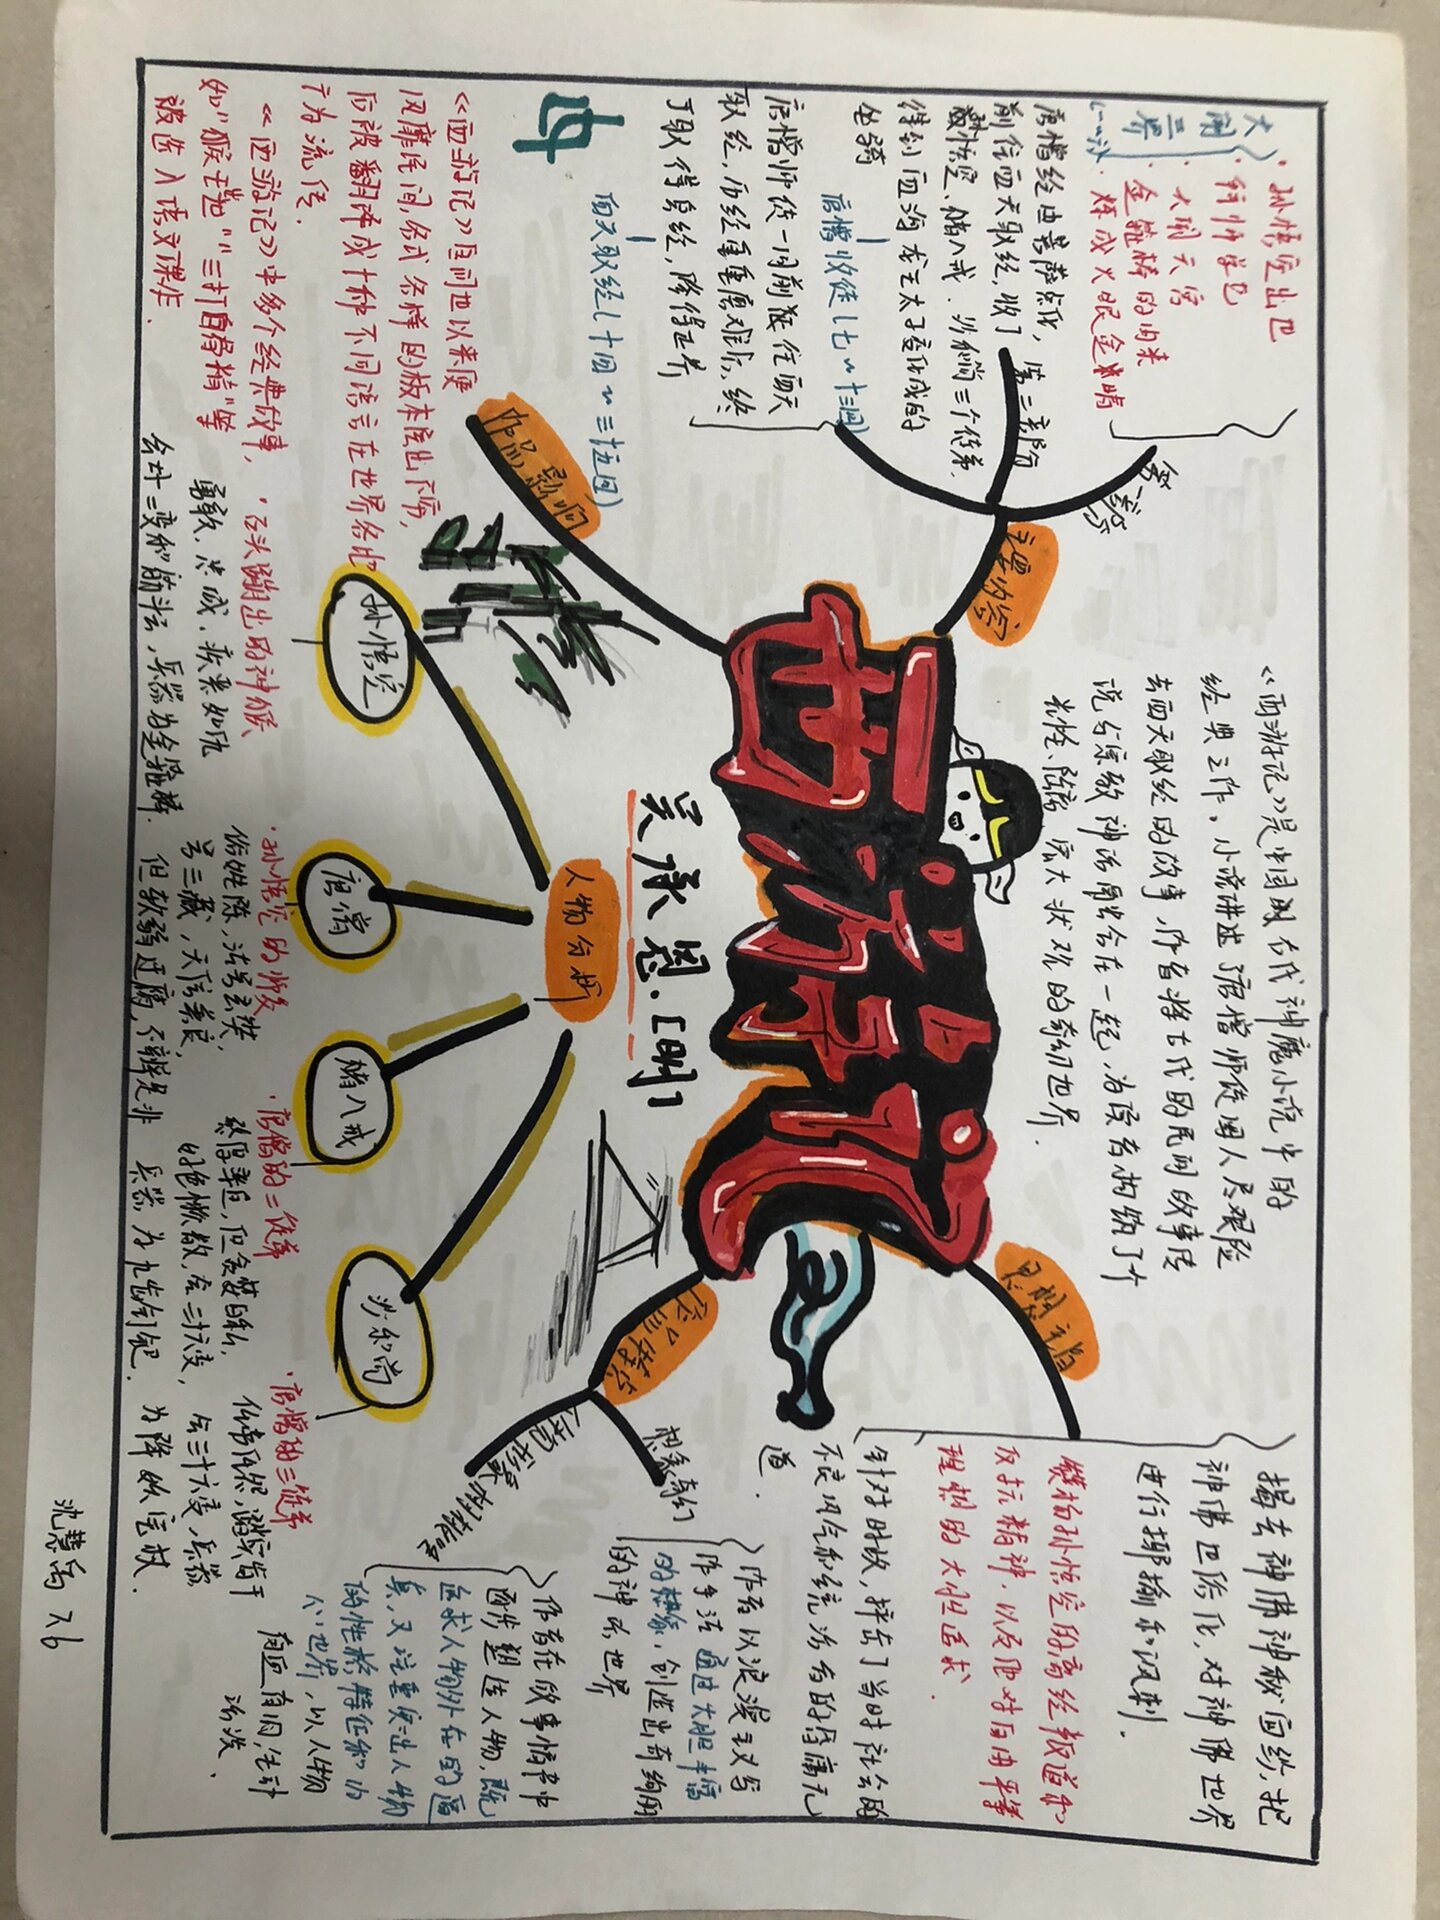 西游记
吴承恩.[明]
《西游记》是中国古代神魔小说中的
经典之作。小说讲述了唐僧师徒四人历艰险
去西天取经的故事,作者将古代的民间故事传
说与宗教神话融合在一起,为读者构筑了个
宏大状观的奇幻世界.
主要内容
第一部分
大闹三界
·孙悟空出世
·拜师学艺
·大闹天宫
金箍棒的由来
炼成火眼金睛
第二部分
唐僧经由菩萨点化,
前往西天取经,收了
孙悟空、猪八戒、沙和尚三个徒弟,
得到西海龙王太子变化成的
坐骑
唐僧收徒(七~十三回)
唐僧师徒一同前往西天
取经,历经重重磨难后,终
于取得真经,降得世界
西天取经(十四~三十五回)
作品影响
《西游记》自问世以来便
风靡民间,各式各样的版本层出不穷,
后被翻译成十种不同语言在世界各地
广为流传.
《西游记》中多个经典故事,
如“猴王出世”“三打白骨精”等
被选入语文课本.
人物分析
孙悟空
·石头蹦出的神猴
勇敢、忠诚、疾恶如仇
会七十二变和筋斗云,兵器为金箍棒.
唐僧
·孙悟空的师父
俗姓陈,法号玄奘,
号三藏,大信善良,
但软弱迂腐,不辨是非
猪八戒
·唐僧的二徒弟
憨厚率直,但贪婪自私,
好色懒散,会三十六变,
兵器为九齿钉钯.
沙和尚
·唐僧的三徒弟
任劳任怨,踏实肯干
会三十六变,兵器
为降妖宝杖.
思想主旨
揭去神佛神秘面纱,把
神佛世俗化,对神佛世界
进行揶揄和讽刺.
赞扬孙悟空的离经叛道和
反抗精神,以及他对自由平等
理想的大胆追求.
针对时政,抨击了当时社会的
不良风气和统治者的昏庸无
道.
艺术特色
想象奇幻
作者以浪漫主义写
作手法通过大胆丰富
的想象,创造出奇绚丽
的神话世界
塑造
作者在故事情节中
逐步塑造人物,既
追求人物外在的逼
真,又注重突出人物
的性格特征和内
心世界,以人物
有血有肉,生动
活泼.
沈慧禹 26